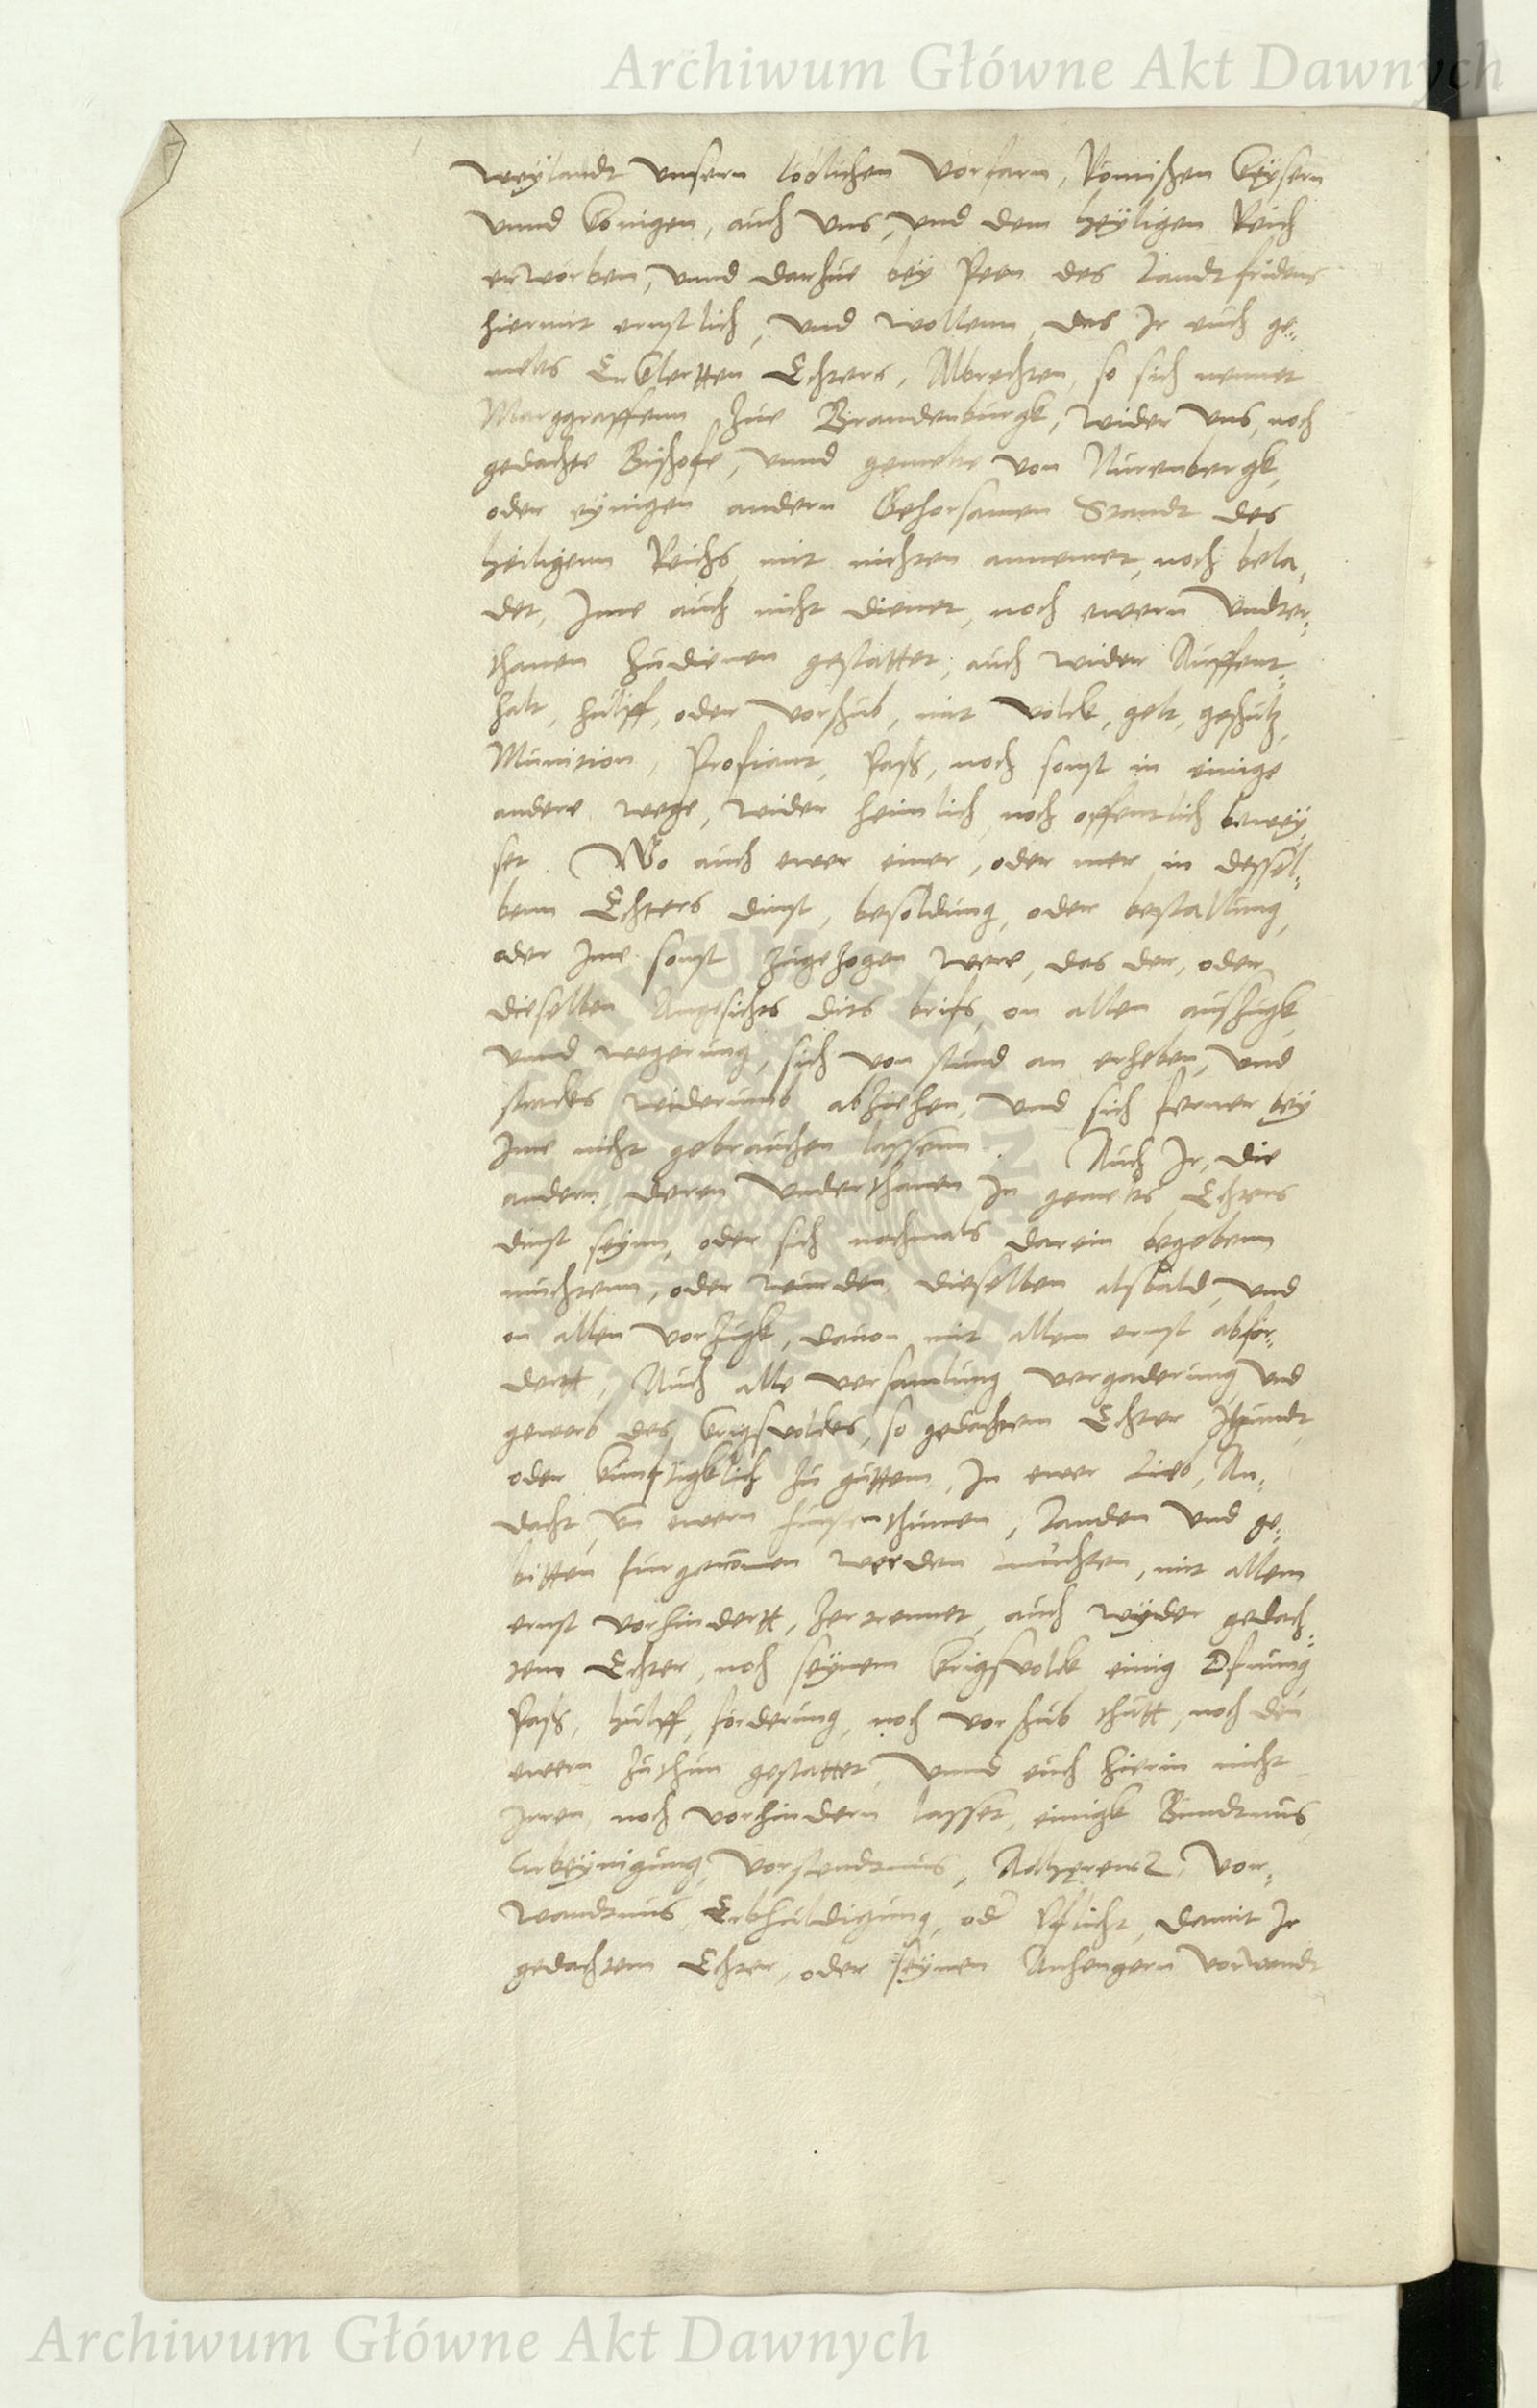 Archiwum Główne Akt Dawnych
weylandt unsern loblichen Vorfarn, Romischen Keysern
unnd Konigen, auch uns, und dem heyligen Reich
erworben, unnd darhue bey Peen des Landtfridens
hiermit ernstlich, und wollenn, das Ir euch ge-
melts Erklertten Echters, Albrechten, so sich nennet
Marggraffenn zue Brandenburgk, wider uns, noch
gedachte Bischofe, unnd gemelte von Nurenbergk,
oder eynigen andern Gehorsamen Standt des
heiligenn Reichs, mit nichten annemet, noch bela-
det, Ime auch nicht dienet, noch ewern Undter-
thanen zudienen gestattet, auch wider Auffent-
halt, hulff, oder vorschub, mit volck, gelt, geschutz,
Munition, Profiant, Paß, noch sonst in einige
andere wege, wider heimlich noch offentlich bewey-
set. Wo auch ewer einer, oder mer in dessel-
benn Echters dinst, besoldung, oder bestallung,
oder Ime sonst zugezogen were, das der, oder
dieselben Angesichts dits brifs, on allen auszugk,
unnd wegerung, sich von stund an erheben, und
stracks widerumb abziehen, und sich ferner bey
Ime nicht gebrauchen lassenn. Auch Ir, die
andern, deren Underthanen In gemelts Echters
dinst seynn, oder sich nochmals darein begebenn
muchtenn, oder wurden, dieselben alsbald, und
on allen vorzugk, davon mit allem ernst abfor-
dertt, Auch alle versamlung, vergaderung und
gewerb des krigsvolcks, so gedachtem Echter Itzundt,
oder kunftigklich zu guttem, In ewer Lieb, An-
dacht, un ewern furstenthumen, Landen und ge-
bitten furgenommen werden muchten, mit allem
ernst vorhindertt, zertrennet, auch wyder gedach-
tem Echter, noch seynem krigsvolck einig Ofnung,
Paß, hulff, forderung, noch vorschub thutt, noch den
ewern zuthun gestattet, unnd euch hierin nicht
Irren noch vorhindern lasset, einigk Bundtnus,
Erbeynigung, Vorstendtnus, Adherentz, Vor-
wandtnus, Erbhuldigung, oder Pflicht, damit Ir
gedachtem Echter, oder seynen Anhengern vorwandt
Archiwum Główne Akt Dawnych